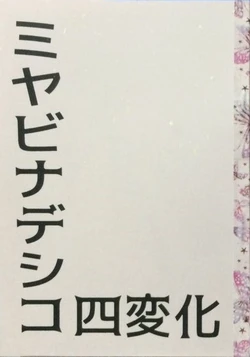 ミヤビナデシコ
四変化